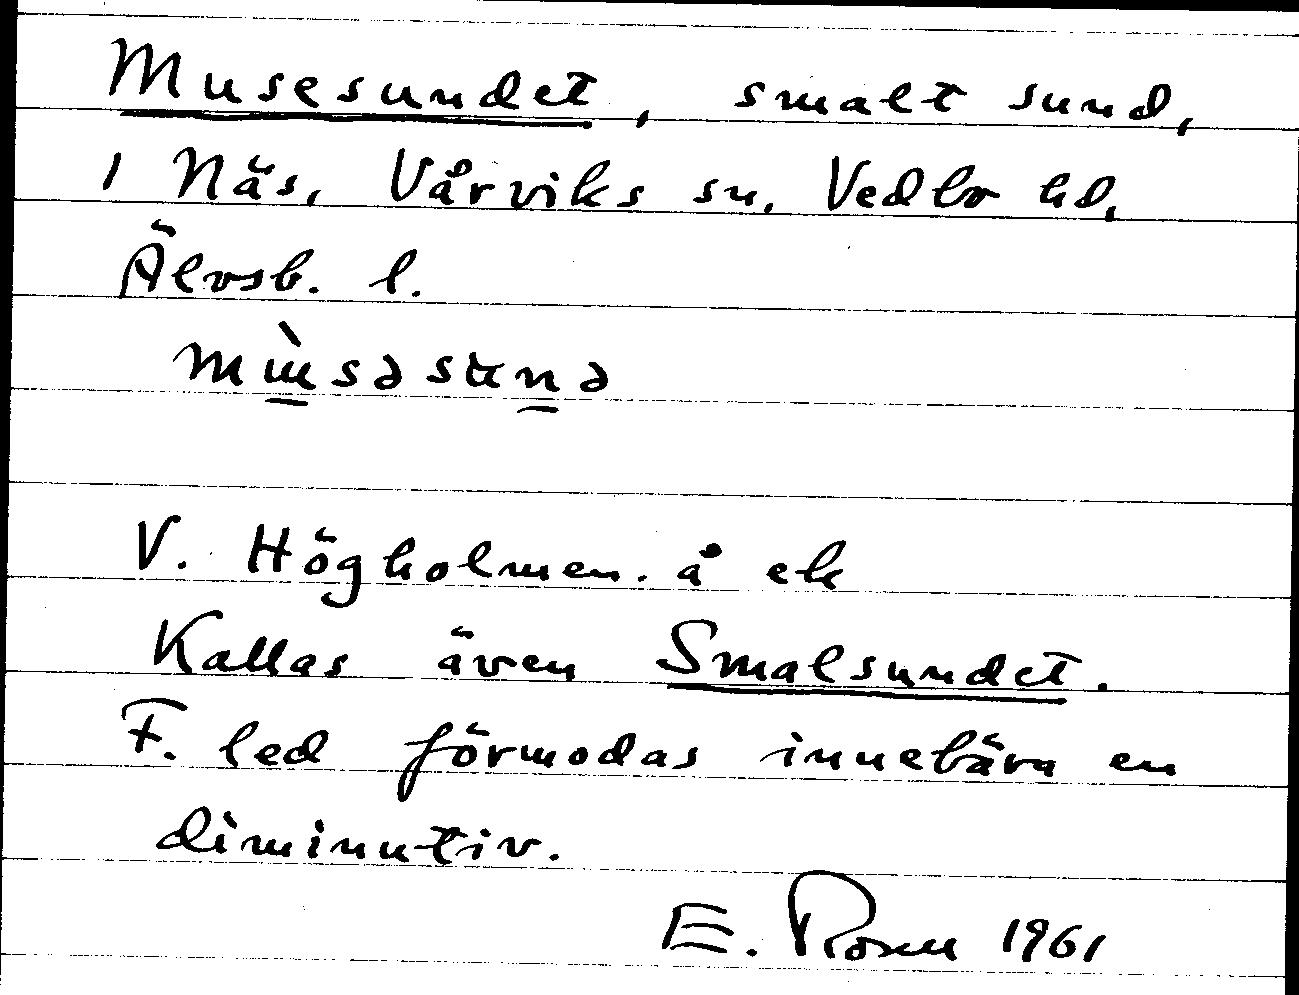 Musesundet, smalt sund,
i Näs, Vårviks sn. Vedbo hd,
Älvsb. l.
V. Högholmen. å ek
Kallas även Smalsundet.
F. led förmodas innebära en
diminutiv.
E. Rosen 1961